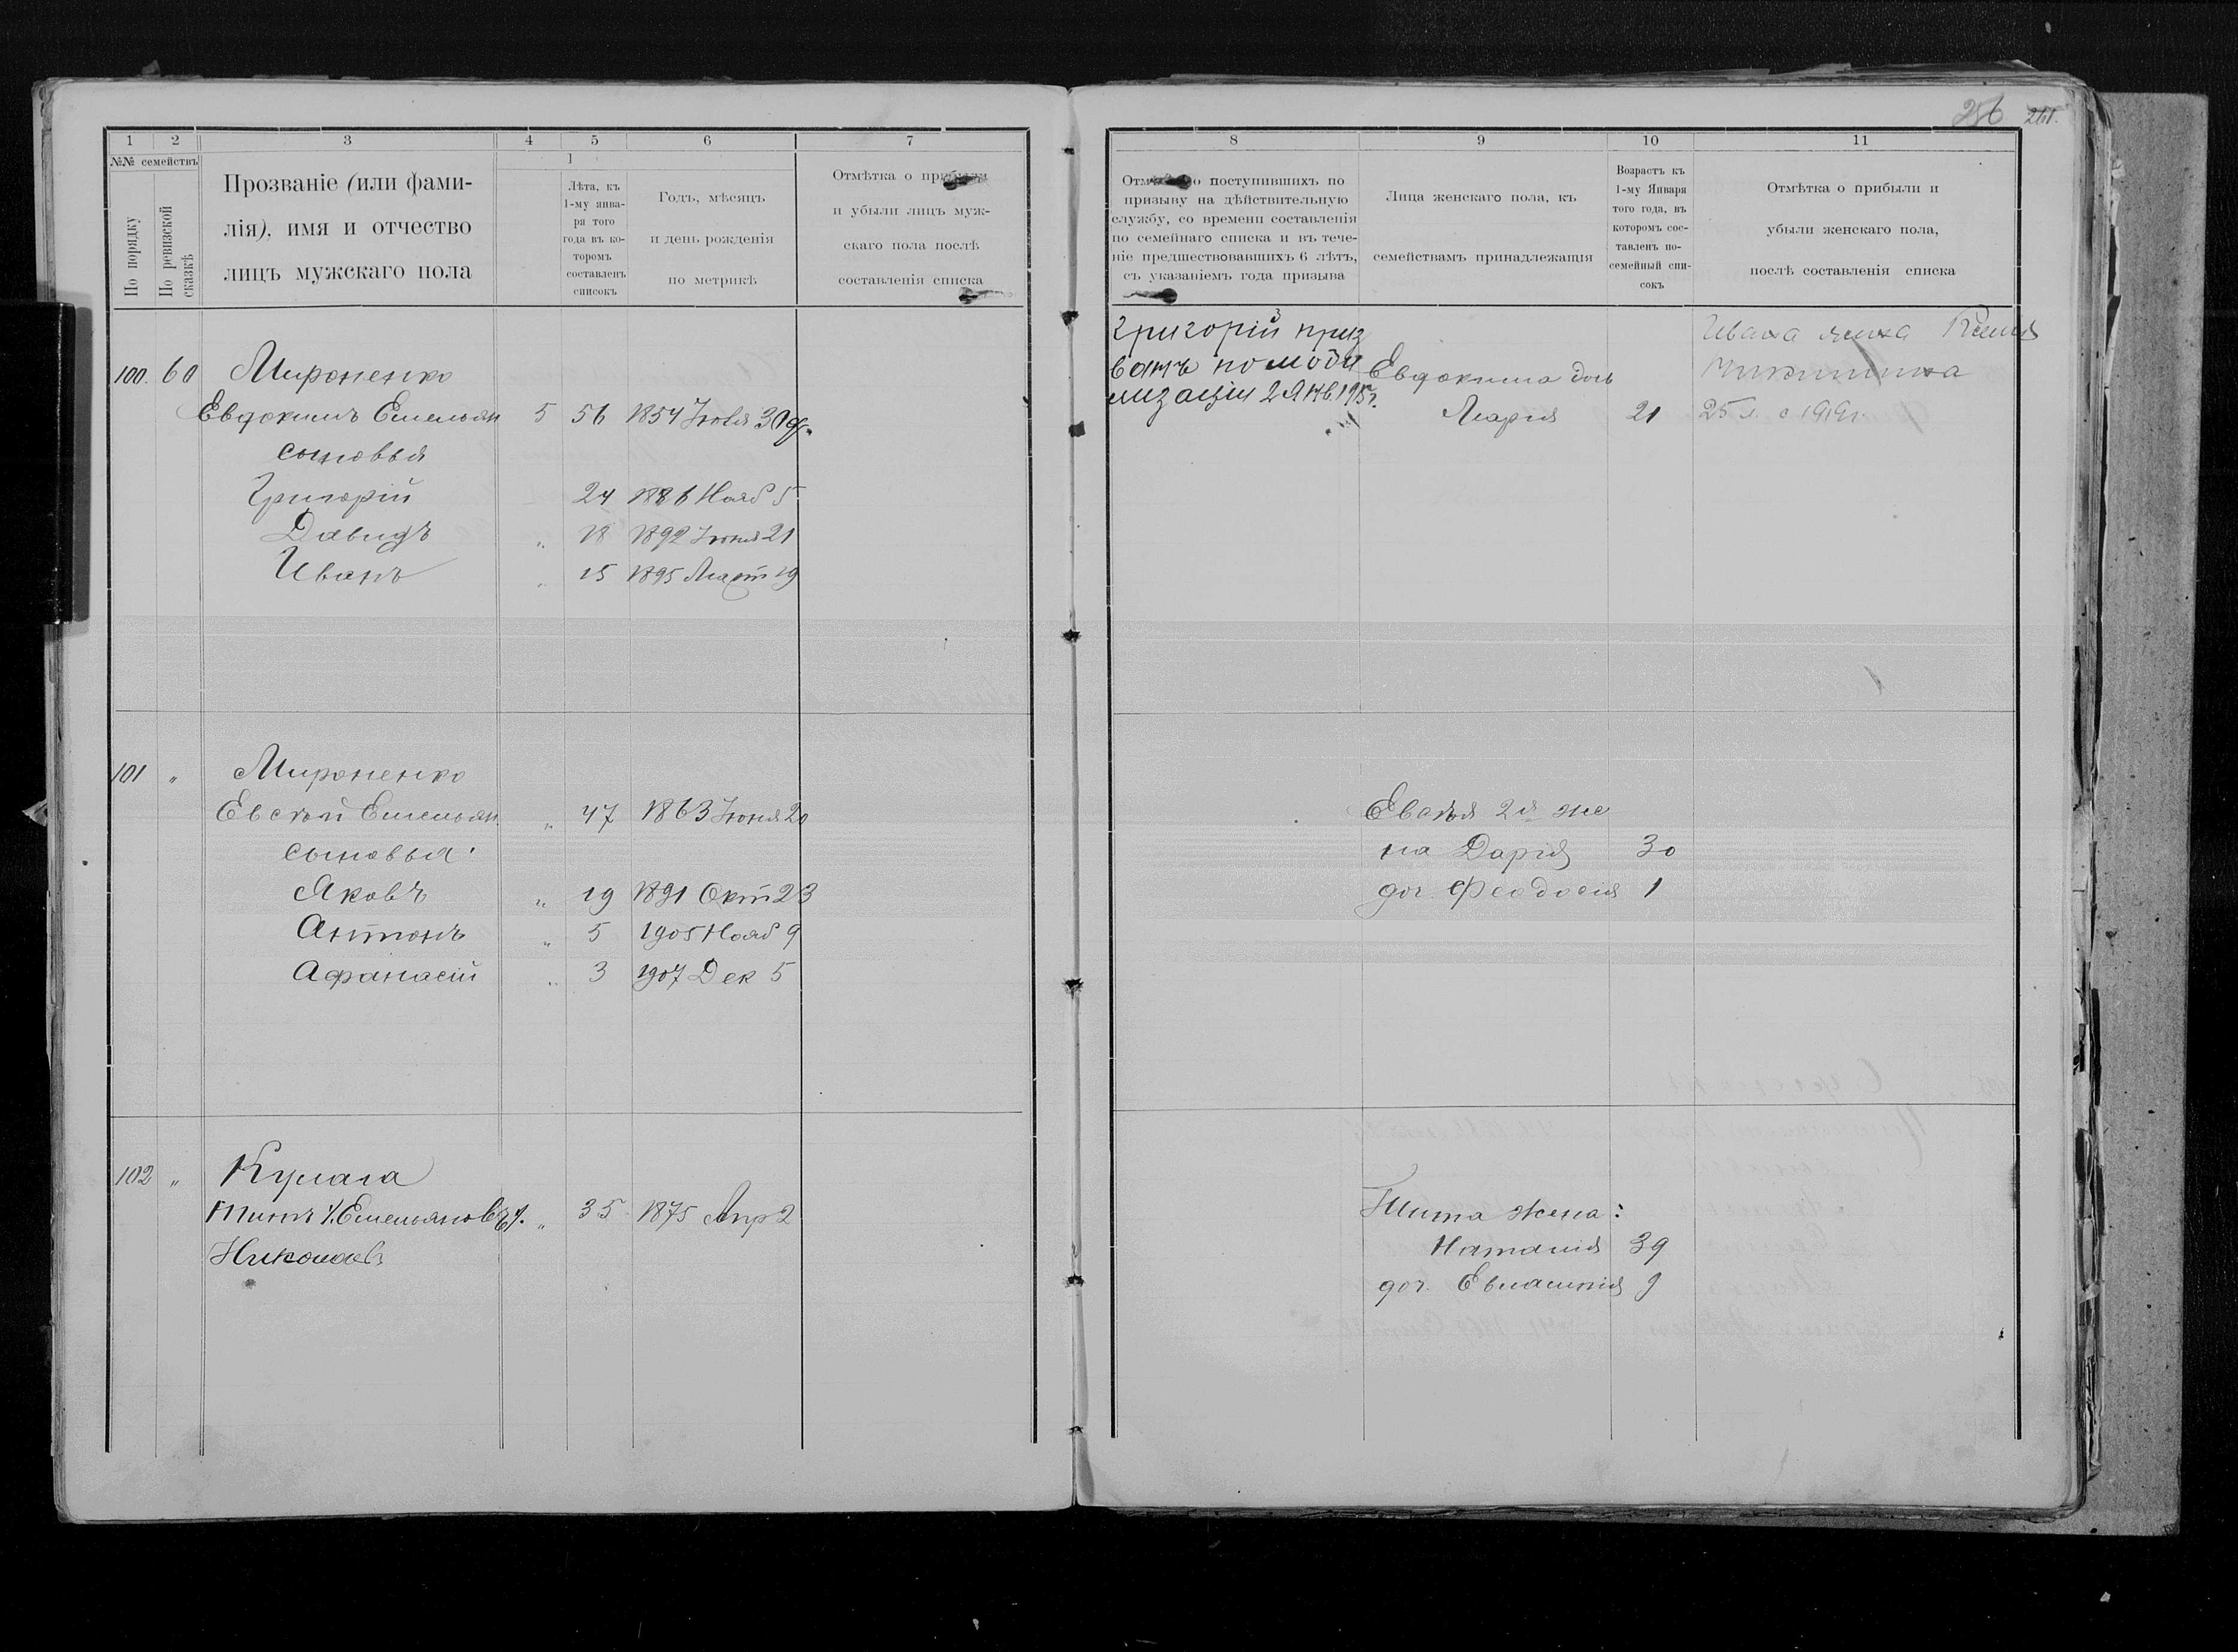 256 261.
1 2 3 4 5 6 7
№№ семействъ
По порядку
По ревизской сказкѣ
Прозваніе (или фами-
лія), имя и отчество
лицъ мужскаго пола
1
Лѣта, къ
1-му янва-
ря того
года въ ко-
торомъ
составленъ
списокъ
Годъ, мѣсяцъ
и день рожденія
по метрикѣ
Отмѣтка о прибыли
и убыли лицъ муж-
скаго пола послѣ
составленія списка
100. 60 Мироненко
Евдокимъ Емельян 5 56 1854
сыновья
Григорій 24 1886 Нояб 5
Давидъ „ 18 1892 Іюня 21
Иванъ „ 15 1895 Март 19
101 „ Мироненко
Евсѣй Емельян. „ 47 1863 Іюня 20
сыновья:
Яковъ „ 19 1891 Окт 23
Антонъ „ 5 1905 Нояб 9
Афанасій „ 3 1907 Дек 5
102 „ Кулага
Титъ Емельяновъ „ 35 1875 Апр 2
Николаевъ
8 9 10 11
Отмѣтка о поступившихъ по
призыву на дѣйствительную
службу, со времени составленія
по семейнаго списка и въ тече-
ніе предшествовавшихъ 6 лѣтъ,
съ указаніемъ года призыва
Лица женскаго пола, къ
семействамъ принадлежащія
Возрастъ къ
1-му Января
того года, въ
которомъ сос-
тавленъ по-
семейный спи-
сокъ
Отмѣтка о прибыли и
убыли женскаго пола,
послѣ составленія списка
Григорій приз
ванъ по моби
лизаціи 2 Янв. 1915 г.
Евдокима дочь
Марія 21
Ивана жена Ксенія
25 л. с 1919 г.
Евсѣя 2я же
на Дарія 30
доч. Феодосія 1
Тита жена:
Наталія 39
доч. Евлампія 9